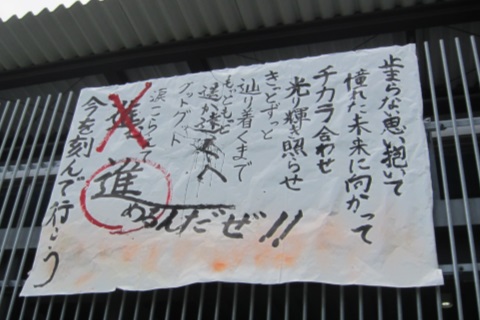 止まらな思い抱いて
憧れた未来に向かって
チカラ合わせ
光り輝き照らせ
きっとずっと
辿り着くまで
もっともっと
遥か遠くへ
フットゲット
涙こらえて
進
進めるんだぜ!!
今を刻んで行こう